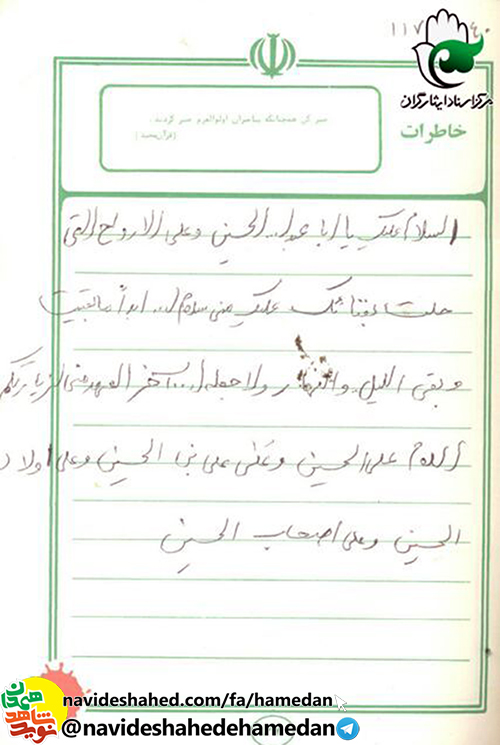 ۱۱۷
مرکز اسناد ایثارگران
خاطرات
صبر کن همچنانکه پیامبران اولوالعزم صبر کردند.
(قرآن مجید)
السلام علیک یا ابا عبدا... الحسین و علی الارواح التی
حلت بفنائک علیک منی سلام ا... ابداً ما بقیت
و بقی اللیل والنهار ولا جعله ا... آخر العهد منی لزیارتکم
السلام علی الحسین و علی علی بن الحسین و علی اولاد
الحسین و علی اصحاب الحسین
نوید شاهد همدان
navideshahed.com/fa/hamedan
@navideshahedehamedan